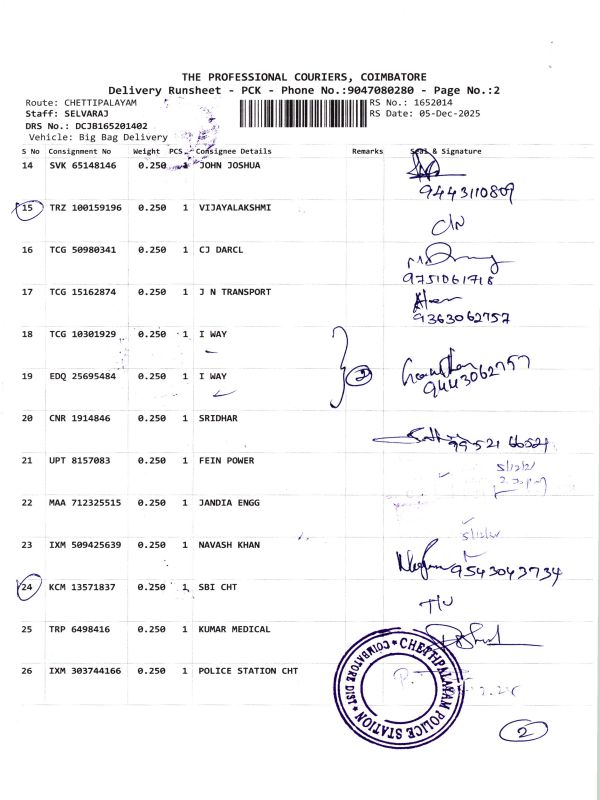 THE PROFESSIONAL COURIERS, COIMBATORE
Delivery Runsheet - PCK - Phone No.:9047080280 - Page No.:2
Route: CHETTIPALAYAM RS No.: 1652014
Staff: SELVARAJ RS Date: 05-Dec-2025
DRS No.: DCJB165201402
Vehicle: Big Bag Delivery
S No Consignment No Weight PCS Consignee Details Remarks Seal & Signature
14 SVK 65148146 0.250 1 JOHN JOSHUA
9443110809
15 TRZ 100159196 0.250 1 VIJAYALAKSHMI
C/N
16 TCG 50980341 0.250 1 CJ DARCL
9751061718
17 TCG 15162874 0.250 1 J N TRANSPORT
9363062757
18 TCG 10301929 0.250 1 I WAY
2
19 EDQ 25695484 0.250 1 I WAY
9443062757
20 CNR 1914846 0.250 1 SRIDHAR
99521 66521
21 UPT 8157083 0.250 1 FEIN POWER
22 MAA 712325515 0.250 1 JANDIA ENGG
23 IXM 509425639 0.250 1 NAVASH KHAN
9543043734
24 KCM 13571837 0.250 1 SBI CHT
25 TRP 6498416 0.250 1 KUMAR MEDICAL
26 IXM 303744166 0.250 1 POLICE STATION CHT
CHETTIPALAYAM POLICE STATION
COIMBATORE DIST
2